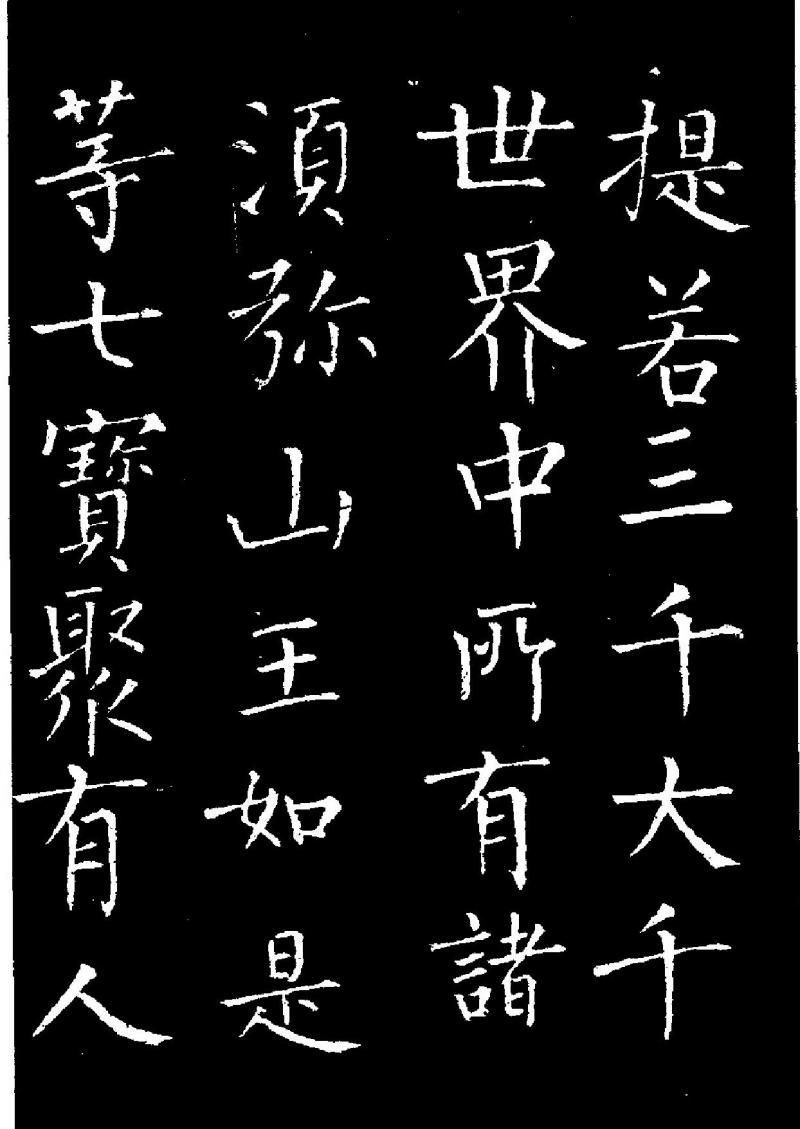 提若三千大千
世界中所有諸
須弥山王如是
等七寶聚有人